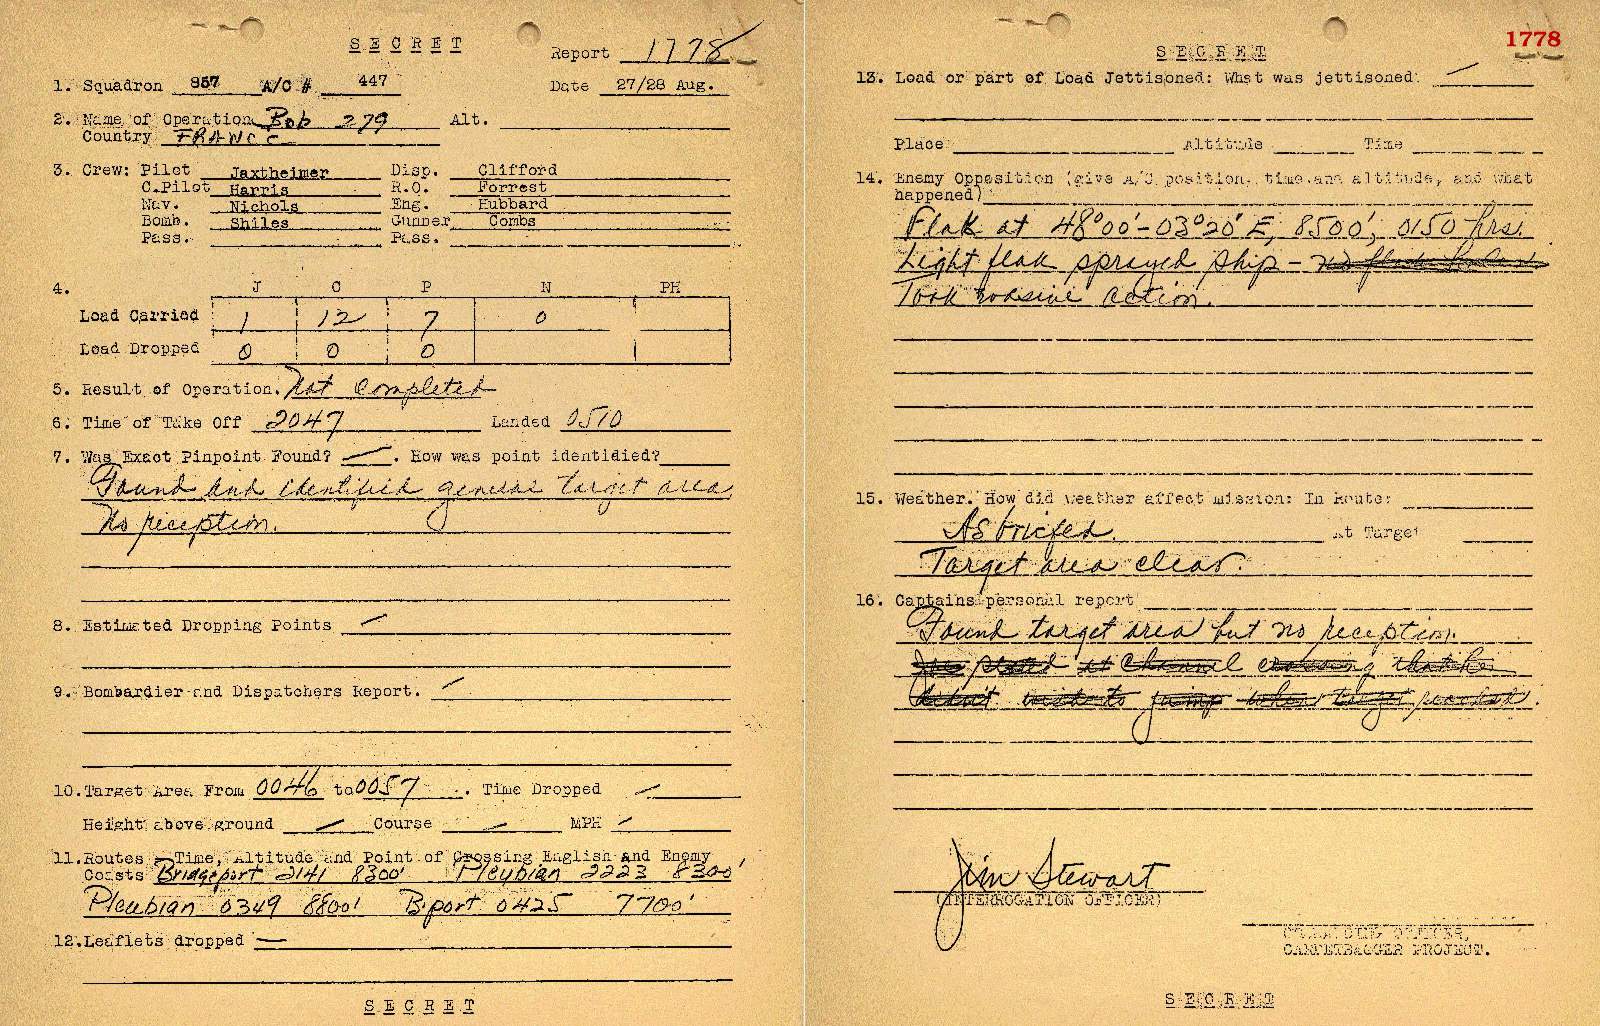 SECRET
Report 1778
1. Squadron 857 A/C # 447 Date 27/28 Aug.
2. Name of Operation Bob 279 Alt.
Country FRANCE
3. Crew: Pilot Jaxtheimer Disp. Clifford
C.Pilot Harris R.O. Forrest
Nav. Nichols Eng. Hubbard
Bomb. Shiles Gunner Combs
Pass. Pass.
4. J C P N PH
Load Carried 1 12 7 0
Load Dropped 0 0 0
5. Result of Operation. Not Completed
6. Time of Take Off 2047 Landed 0510
7. Was Exact Pinpoint Found? . How was point identidied?
Found and identified general target area
No reception.
8. Estimated Dropping Points
9. Bombardier and Dispatchers Report.
10. Target Area From 0046 to 0057. Time Dropped
Height above ground Course MPH
11. Routes - Time, Altitude and Point of Crossing English and Enemy
Coasts Bridgeport 2141 8300' Pleubian 2223 8300'
Pleubian 0349 8800' B.port 0425 7700'
12. Leaflets dropped
SECRET
1778
SECRET
13. Load or part of Load Jettisoned: What was jettisoned:
Place Altitude Time
14. Enemy Opposition (give A/C position, time and altitude, and what
happened)
Flak at 48°00'-03°20'E, 8500', 0150 hrs.
Light flak sprayed ship -
Took evasive action.
15. Weather. How did weather affect mission: In Route:
As briefed. At Target
Target area clear.
16. Captains personal report
Found target area but no reception.
Joe at Channel crossing that he
didn't wish to jump when target reached.
Jim Stewart
(INTERROGATION OFFICER)
COMMANDING OFFICER,
CARPETBAGGER PROJECT.
SECRET